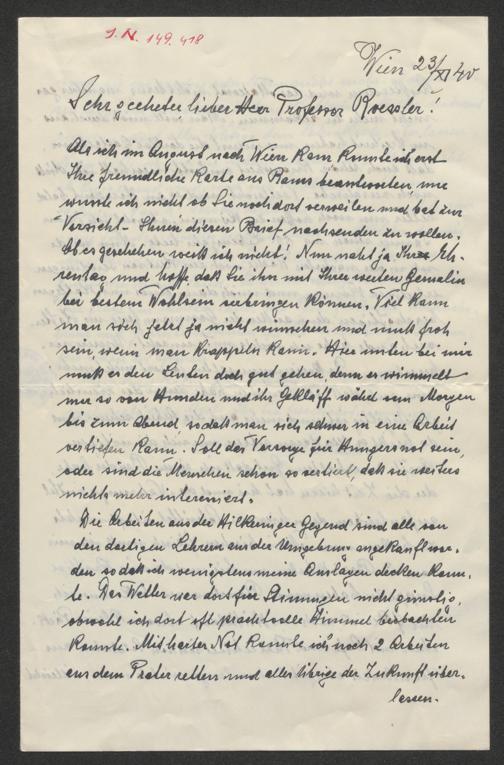 J.N. 149.418
Wien 23/XI 40
Sehr geehrter, lieber Herr Professor Roessler!
Als ich im August nach Wien kam konnte ich erst
Ihre freundliche Karte aus Rams beantworten, nur
wusste ich nicht ob Sie noch dort verweilen und bat zur
Vorsicht – Ihnen diesen Brief nachsenden zu wollen.
Ob es geschehen weiß ich nicht! Nun naht ja Ihr Eh-
rentag und hoffe, daß Sie ihn mit Ihrer werten Gemalin
bei bestem Wohlsein verbringen können. Viel kann
man sich jetzt ja nicht wünschen und muß froh
sein, wenn man krappeln kann. Hier unten bei mir
muß es den Leuten doch gut gehen, denn es wimmelt
nur so von Hunden und ihr Gekläff währt vom Morgen
bis zum Abend, sodaß man sich schwer in eine Arbeit
vertiefen kann. Soll das Vorsorge für Hungersnot sein,
oder sind die Menschen schon so vertiert, daß sie weiters
nichts mehr interessiert.
Die Arbeiten aus der Hilkeringer Gegend sind alle von
den dortigen Lehrern aus der Umgebung angekauft wor-
den sodaß ich wenigstens meine Auslagen decken konn-
te. Das Wetter war dort für Stimmungen nicht günstig,
obwohl ich dort oft prachtvolle Himmel beobachten
konnte. Mit harter Not konnte ich noch 2 Arbeiten
aus dem Prater retten und alles übrige der Zukunft über-
lassen.